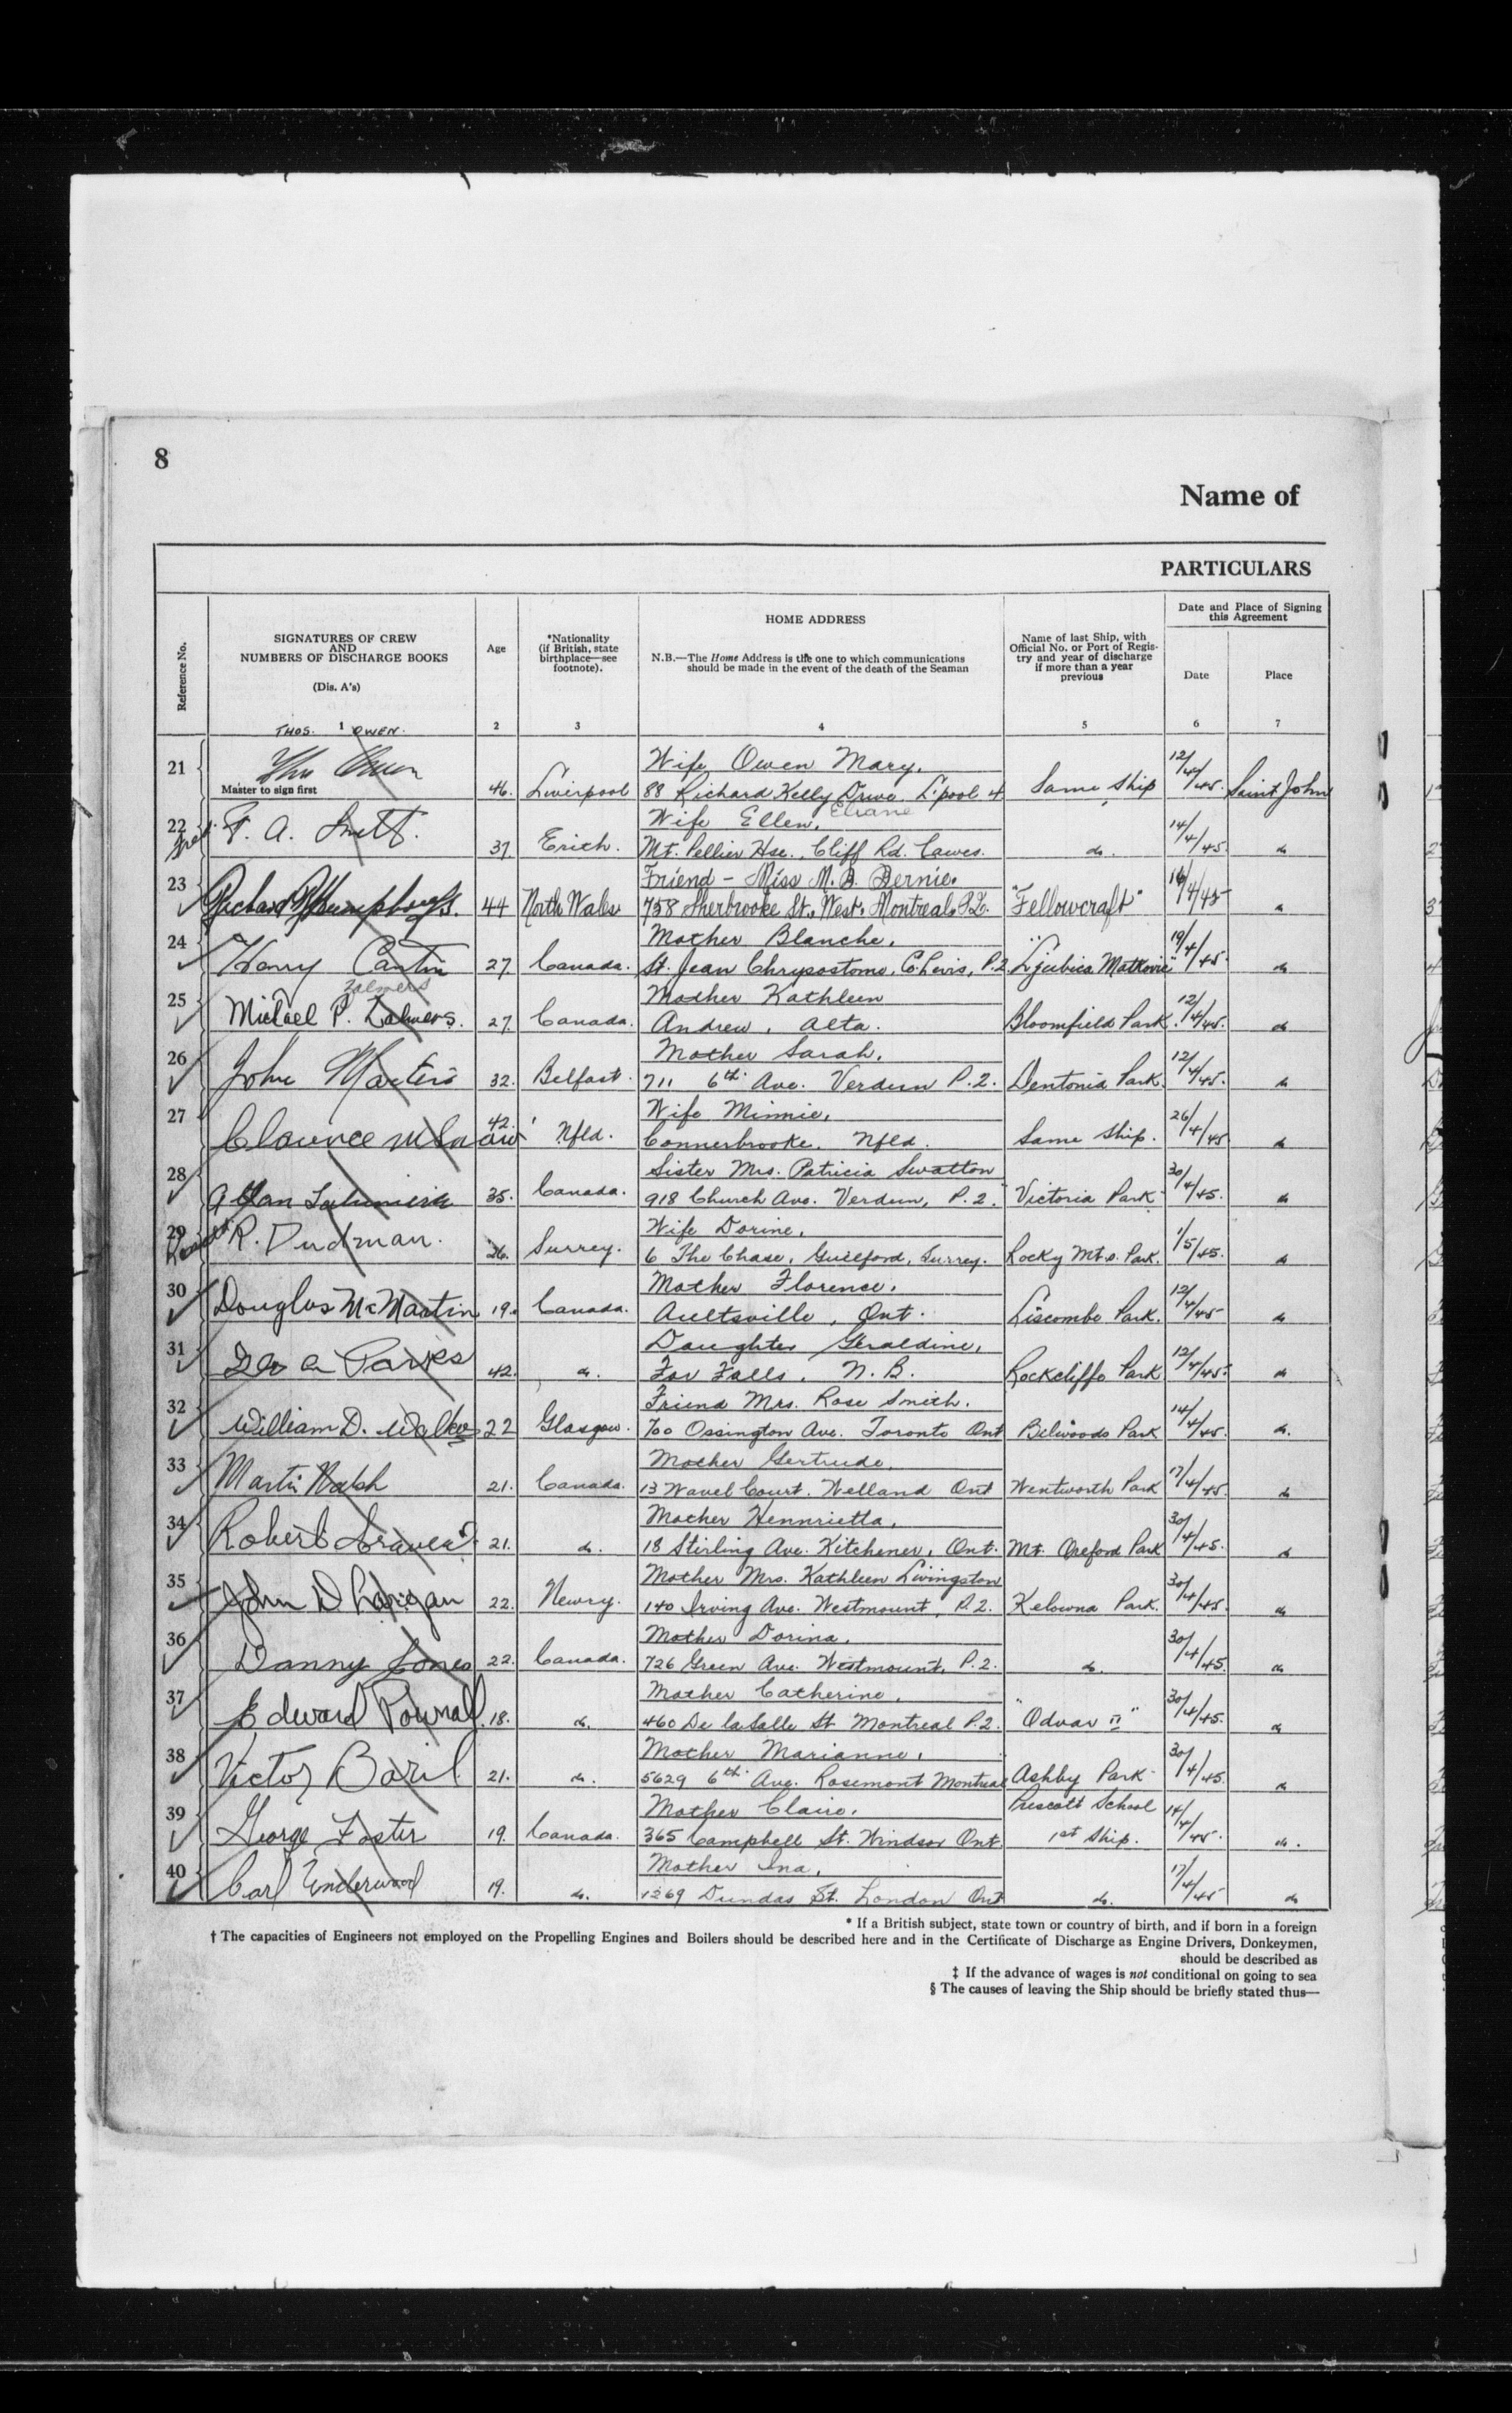 8
Name of
PARTICULARS
Reference No.
SIGNATURES OF CREW
AND
NUMBERS OF DISCHARGE BOOKS
(Dis. A's)
1
Age
2
*Nationality
(if British, state
birthplace—see
footnote).
3
HOME ADDRESS
N.B.—The Home Address is the one to which communications
should be made in the event of the death of the Seaman
4
Name of last Ship, with
Official No. or Port of Regis-
try and year of discharge
if more than a year
previous
5
Date and Place of Signing
this Agreement
Date
6
Place
7
THOS. OWEN.
21 Thos Owen Wife Owen Mary.
Master to sign first 46. Liverpool 88 Richard Kelly Drive L'pool 4 Same Ship 12/4/45. Saint John
22 F. A. Wife Ellen, Eliane
37 Erith. Mt. Pellier Hse., Cliff Rd. Cowes. do. 14/4/45 do
23 Richard Humphreys. Friend - Miss M. B. Bernie.
44 North Wales 758 Sherbrooke St., West, Montreal, P.Q. "Fellowcraft" 14/4/45 do
24 Henry Cantin Mother Blanche,
27 Canada. St. Jean Chrysostome, Co. Levis, P.2 "Ljubica Matkovic" 19/4/45 do
25 Michael P. Zalmers. Zalmers Mother Kathleen
27 Canada. Andrew, Alta. Bloomfield Park. 12/4/45. do
26 John Masters Mother Sarah,
32. Belfast. 711 6th Ave. Verdun P.2. Dentonia Park. 12/4/45. do
27 Clarence 42. Wife Minnie,
Nfld. Connerbrooke, Nfld. Same Ship. 26/4/45 do
28 Allan Sister Mrs. Patricia Swatton
35. Canada. 918 Church Ave. Verdun, P.2. Victoria Park 30/4/45. do
29 R. Dudman. Wife Dorine,
26. Surrey. 6 The Chase, Guilford, Surrey. Rocky Mts. Park. 1/5/45. do
30 Douglas McMartin Mother Florence,
19. Canada. Aultsville, Ont. Liscombe Park. 12/4/45 do
31 Geo A Parks Daughter Geraldine,
42. do. Fox Falls, N.B. Rockcliffe Park 12/4/45. do
32 William D. Walker Friend Mrs. Rose Smith.
22 Glasgow. 700 Ossington Ave. Toronto Ont Belwoods Park 14/4/45. do.
33 Martin Walsh Mother Gertrude,
21. Canada. 13 Wavel Court. Welland Ont Wentworth Park 17/4/45. do
34 Robert Mother Hennrietta,
21. do. 18 Stirling Ave. Kitchener, Ont. Mt. Oreford Park 30/4/45. do
35 John D Larigan Mother Mrs. Kathleen Livingston
22. Newry. 140 Irving Ave. Westmount, P.2. Kelowna Park. 30/4/45. do
36 Danny Jones Mother Dorina,
22. Canada. 726 Green Ave. Westmount, P.2. do. 30/4/45. do
37 Edward Pownall Mother Catherine,
18. do. 460 De laSalle St Montreal P.2. "Odvar II" 30/4/45. do
38 Victor Baril Mother Marianne,
21. do. 5629 6th Ave. Rosemont Montreal Ashby Park 30/4/45. do
39 George Foster Mother Claire, Prescott School
19. Canada. 365 Campbell St. Windsor Ont. 1st Ship. 14/4/45. do.
40 Carl Underwood Mother Ina,
19. do. 1269 Dundas St. London Ont do. 17/4/45 do
* If a British subject, state town or country of birth, and if born in a foreign
† The capacities of Engineers not employed on the Propelling Engines and Boilers should be described here and in the Certificate of Discharge as Engine Drivers, Donkeymen,
should be described as
‡ If the advance of wages is not conditional on going to sea
§ The causes of leaving the Ship should be briefly stated thus—